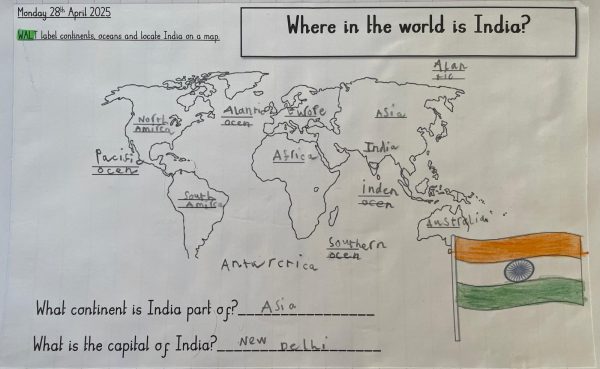 Monday 28th April 2025
Where in the world is India?
WALT label continents, oceans and locate India on a map.
Alan
tic
North
Amirca
Alantic
ocen
Eurofe
Asia
Pacific
ocen
Africa
India
South
Amirca
inden
ocen
Australia
Southern
ocen
Antwrctica
What continent is India part of? Asia
What is the capital of India? New Delhi